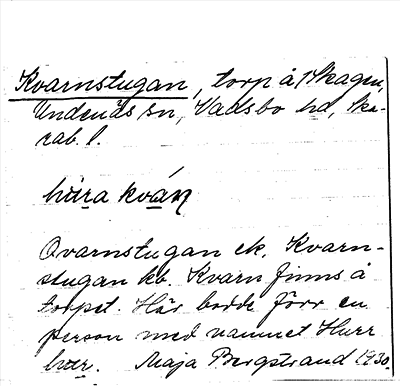 Kvarnstugan, torp å Skagen,
Undenäs sn, Vadsbo hd, Ska-
rab. l.
hura kván
Qvarnstugan ek. Kvarn-
stugan kb. Kvarn finns å
torpet. Här bodde förr en
person med namnet Hurr
hur. Maja Bergstrand 1930.